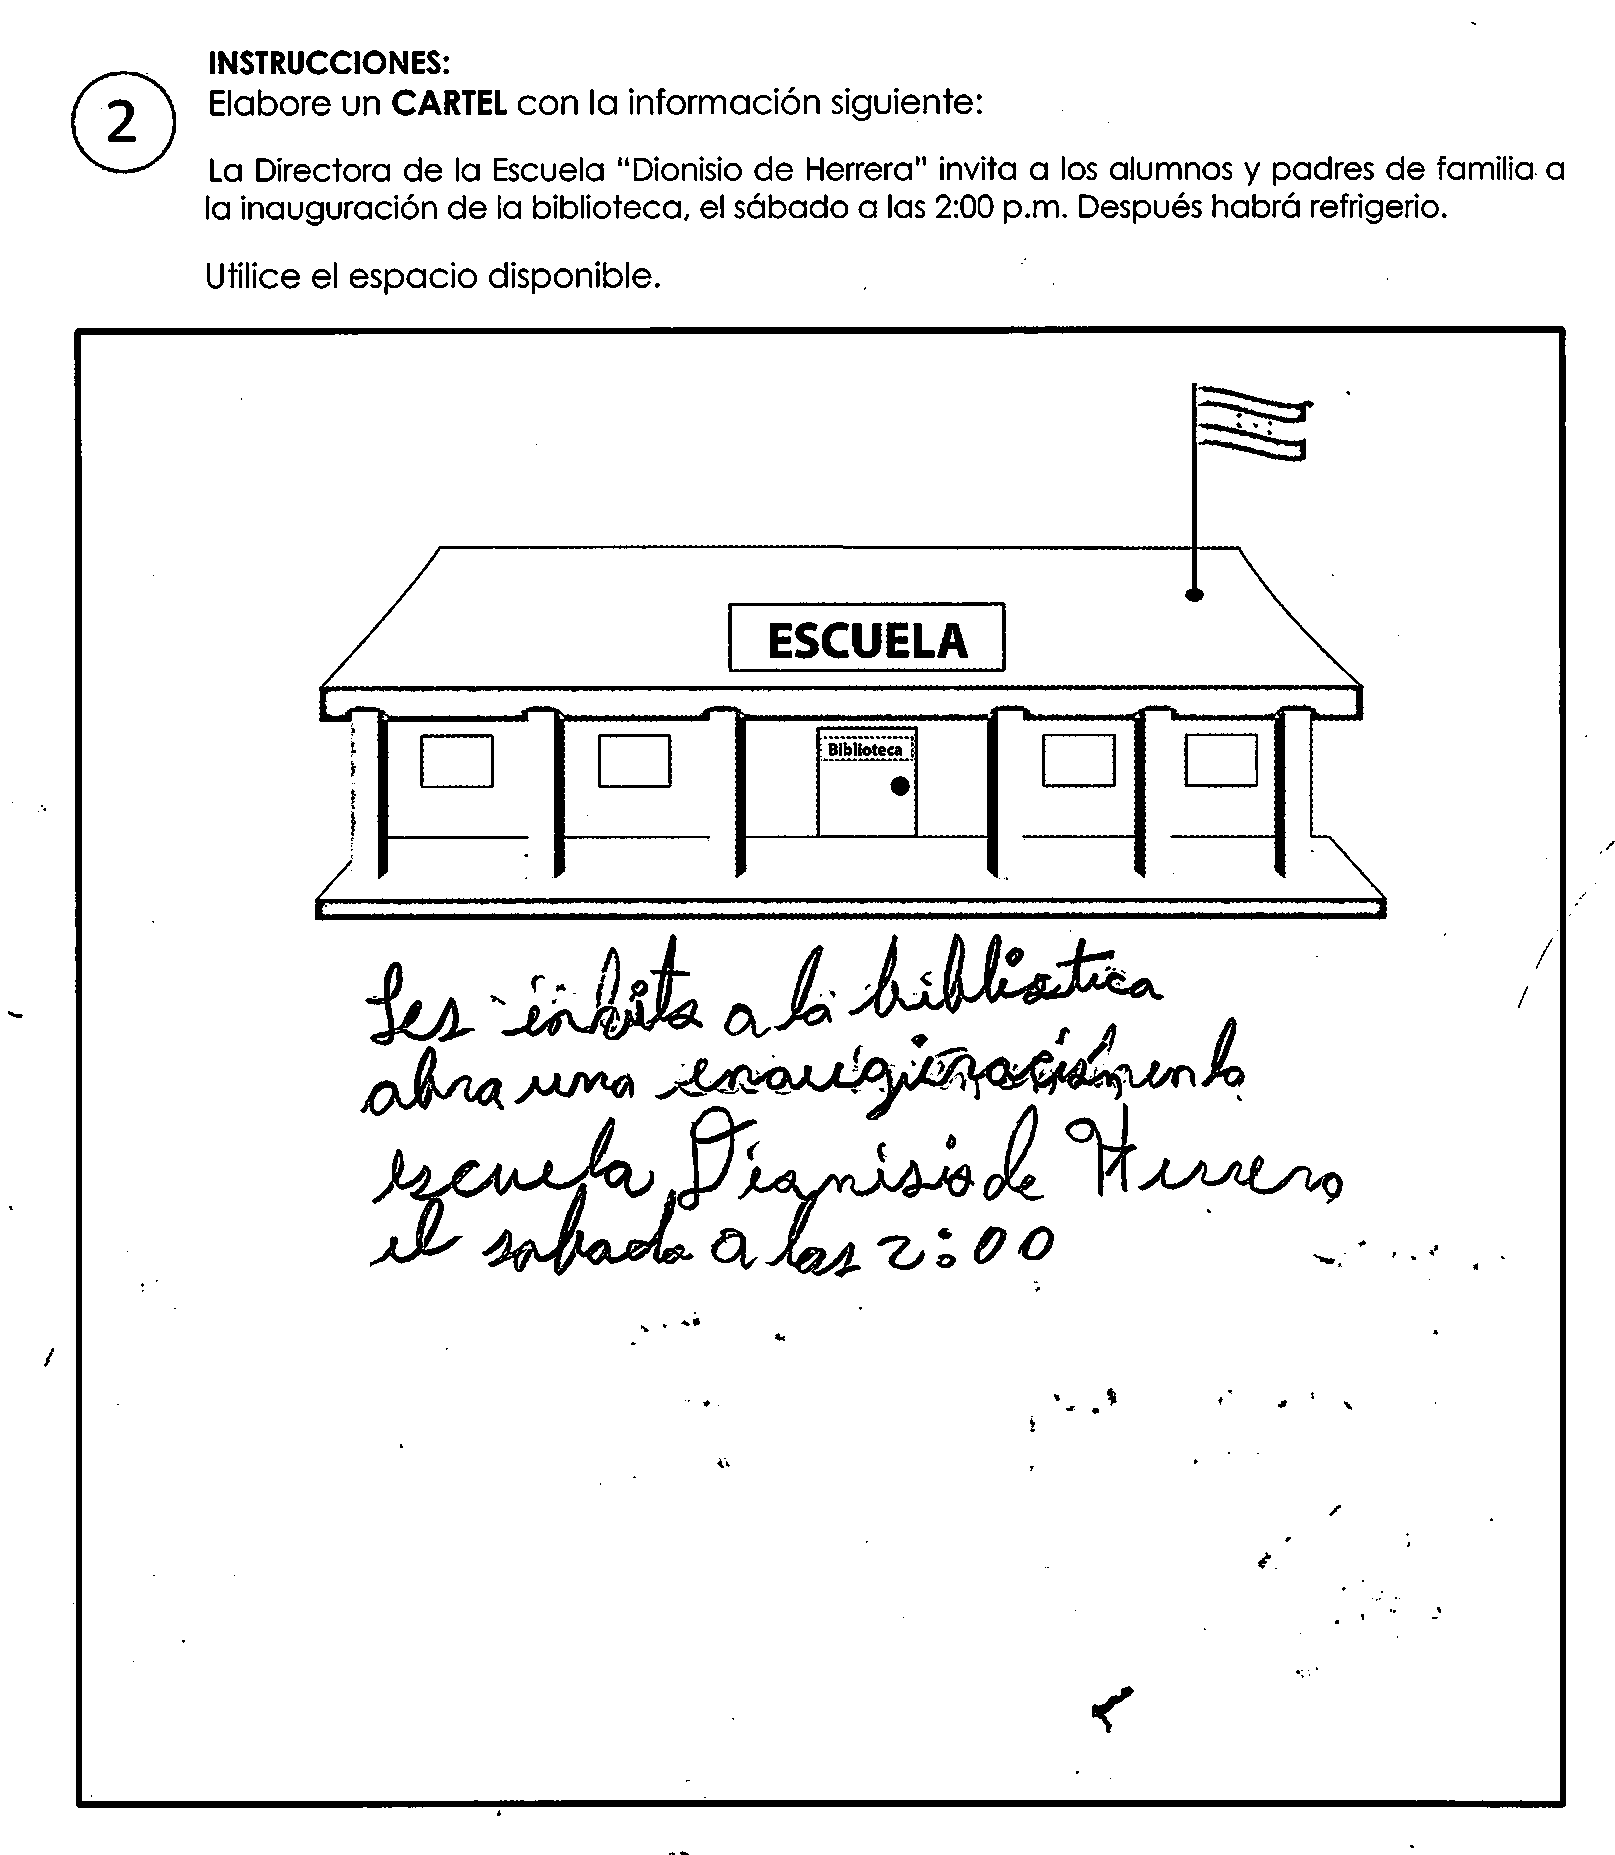 INSTRUCCIONES:
2
Elabore un CARTEL con la información siguiente:
La Directora de la Escuela "Dionisio de Herrera" invita a los alumnos y padres de familia a
la inauguración de la biblioteca, el sábado a las 2:00 p.m. Después habrá refrigerio.
Utilice el espacio disponible.
ESCUELA
Biblioteca
Les inbita a la bibliotica
abra una enauguración en la
escuela Dionisio de Herrera
el sabado a las 2:00